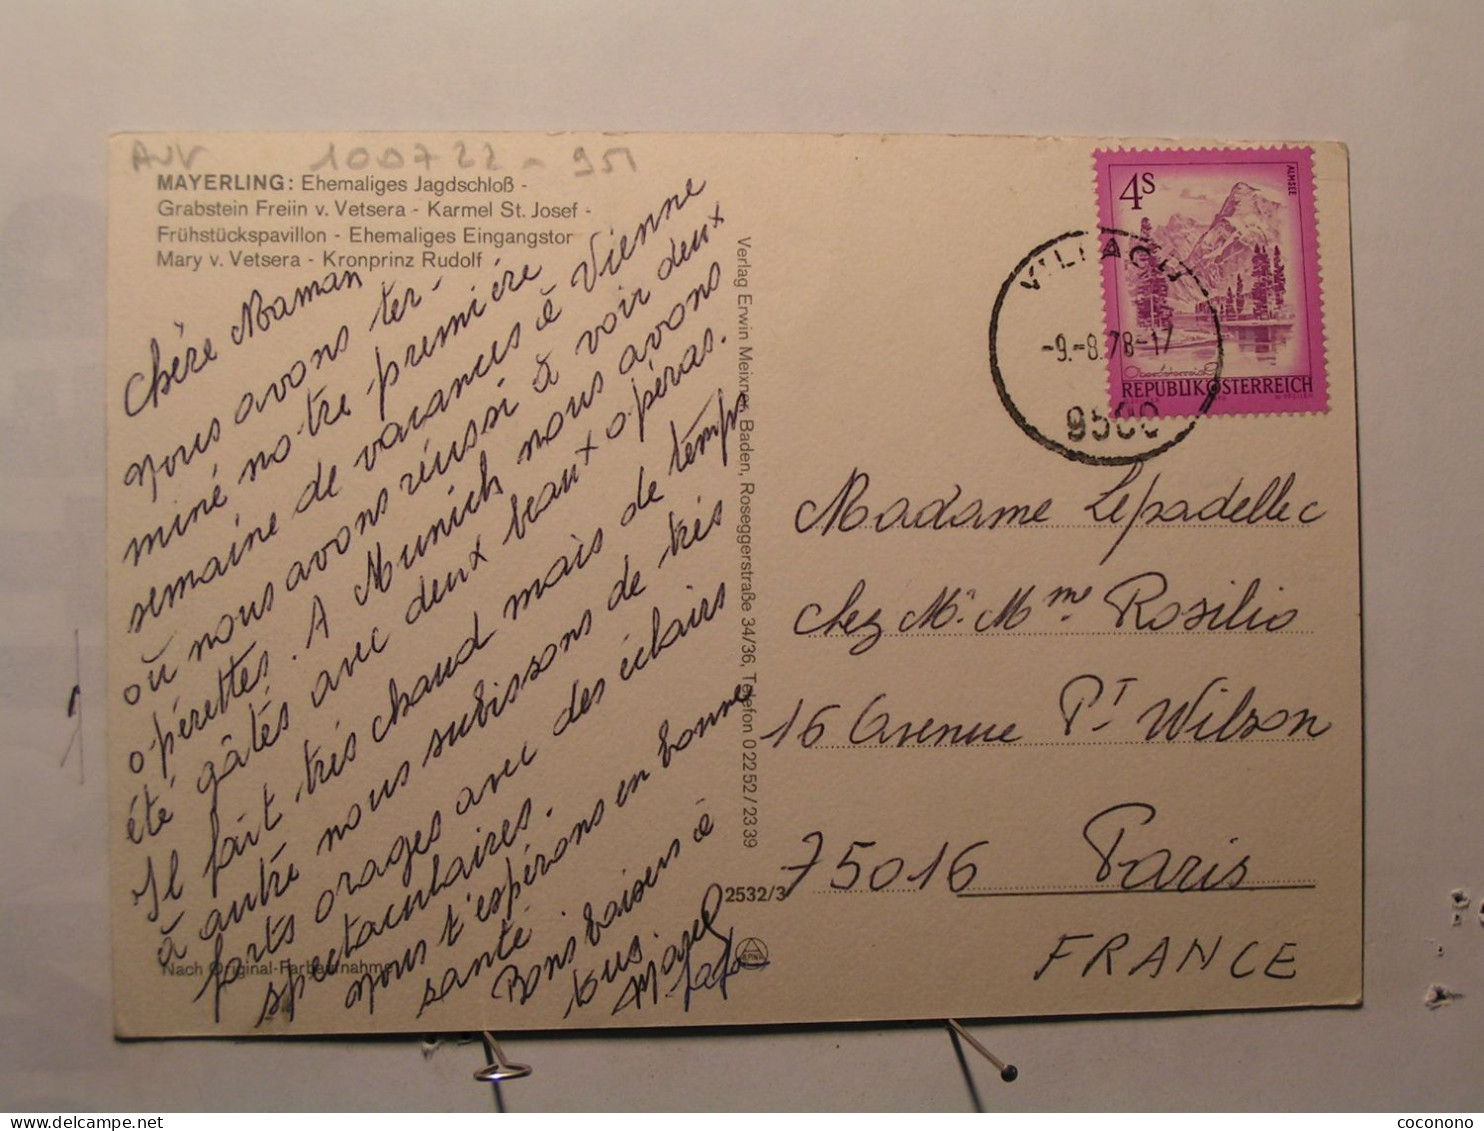 AVV 100722 - 951
MAYERLING: Ehemaliges Jagdschloß -
Grabstein Freiin v. Vetsera - Karmel St. Josef -
Frühstückspavillon - Ehemaliges Eingangstor
Mary v. Vetsera - Kronprinz Rudolf
Chère Maman
nous avons ter-
miné notre première
semaine de vacances à Vienne
où nous avons réussi à voir deux
opérettes. A Munich nous avons
été gâtés avec deux beaux opéras.
Il fait très chaud mais de temps
à autre nous subissons de très
forts orages avec des éclairs
spectaculaires.
nous t'espérons en bonne
santé
Bons baisers à
tous.
Nach Original-Farbaufnahme
Verlag Erwin Meixner, Baden, Roseggerstraße 34/36, Telefon 0 22 52 / 23 39
2532/3
4S
ALMSEE
Oberösterreich
REPUBLIK ÖSTERREICH
VILLACH
-9.-8.78-17
9500
Madame Lepadellec
chez Mr. Mme Rosilio
16 avenue Pt Wilson
75016 Paris
FRANCE
coconono